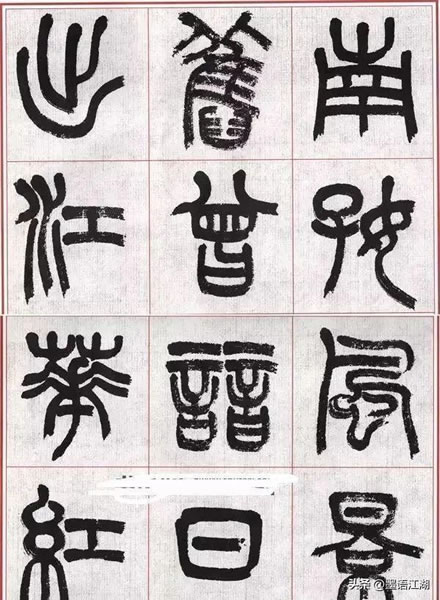 南好風景
舊曾諳日
出江華紅
头条 @墨语江湖